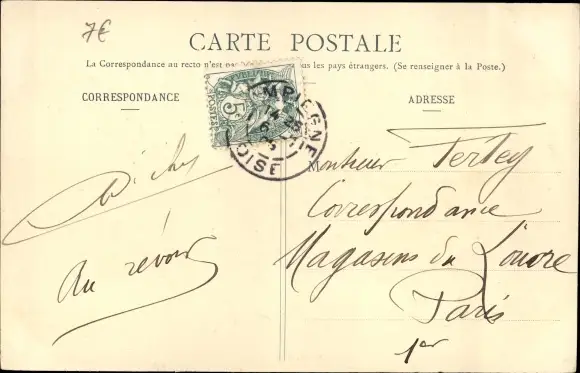 7€
CARTE POSTALE
La Correspondance au recto n'est pas us les pays étrangers. (Se renseigner à la Poste.)
CORRESPONDANCE
ADRESSE
POSTES
5c
MPIEGNE
OISE
Monsieur Tertey
Correspondance
Magasins du Louvre
Paris
1er
au révoir